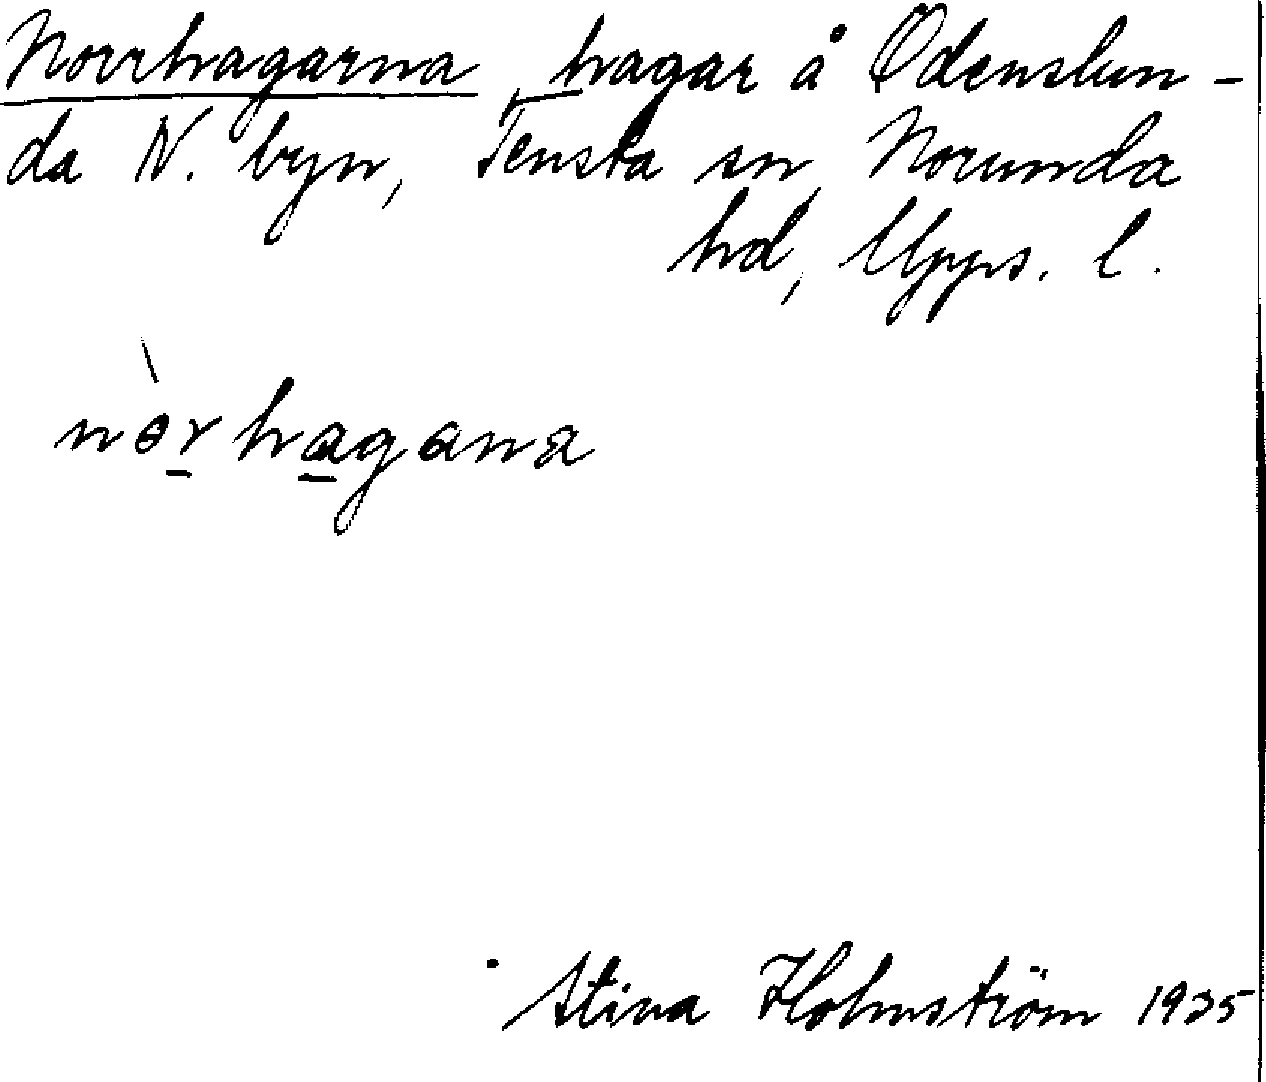 Norrhagarna, hagar å Odenslun-
da N. byn, Tensta sn, Norunda
hd, Upps. l.
nòrhagana
Stina Holmström 1935